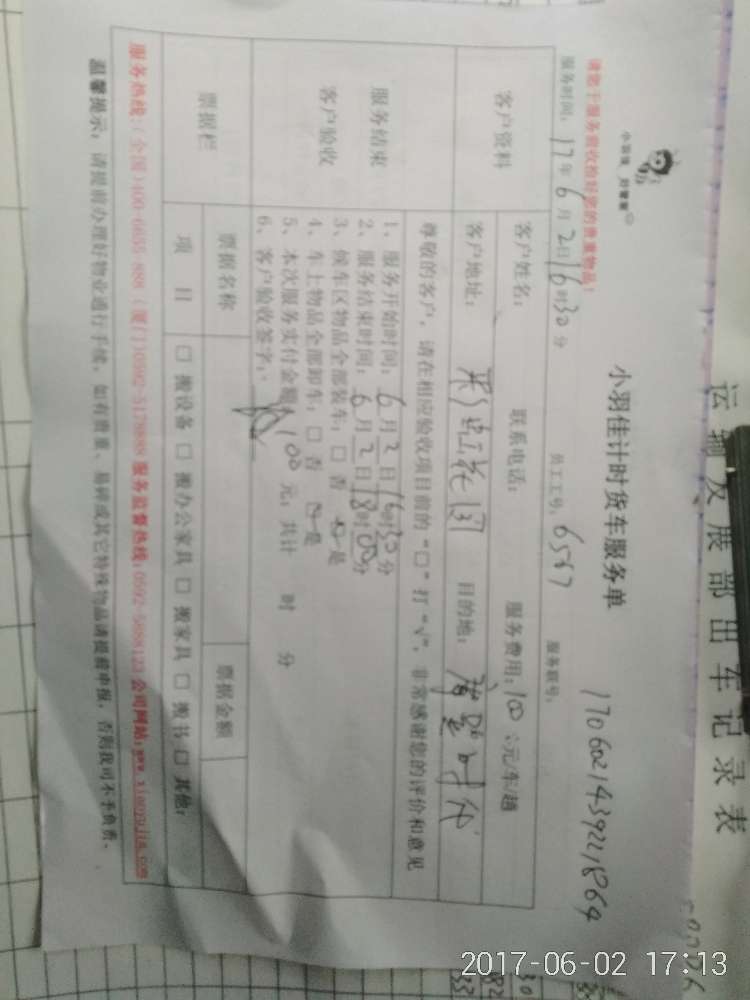 运输及展部出车记录表
小羽佳计时货车服务单
1706021439221864
小羽佳
请您于服务前收检好您的贵重物品!
服务时间: 17年6月2日16时30分
员工工号: 6547
服务联号:
客户资料
客户姓名: 联系电话: 服务费用: 100 元/车/趟
客户地址: 彩虹花园 目的地:
尊敬的客户,请在相应验收项目前的“□”打“√”,非常感谢您的评价和意见
服务结束
客户验收
1、服务开始时间: 6月2日16时30分
2、服务结束时间: 6月2日18时00分
3、候车区物品全部装车: □ 否 □ 是
4、车上物品全部卸车: □ 否 □ 是
5、本次服务实付金额 100 元; 共计 时 分
6、客户验收签字:
票据栏
票据名称 票据金额
项 目 □ 搬设备 □ 搬办公家具 □ 搬家具 □ 搬书 □ 其他:
服务热线:(全国)400-6655-888 (厦门)0592-5178888 服务监督热线:0592-5888123 公司网站:www.xiaoyujia.com
温馨提示: 请提前办理好物业通行手续, 如有贵重、易碎或其它特殊物品请提前申报, 否则我司不予负责。
2017-06-02 17:13